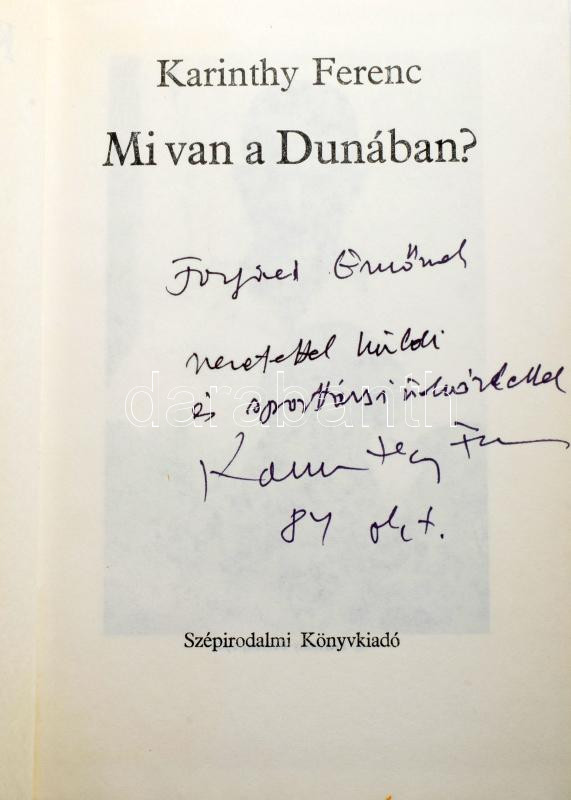 Karinthy Ferenc
Mi van a Dunában?
Ernőnek
szeretettel küldi
és sporttársi üdvözlettel
darabanth
Karinthy Ferenc
84 okt.
Szépirodalmi Könyvkiadó